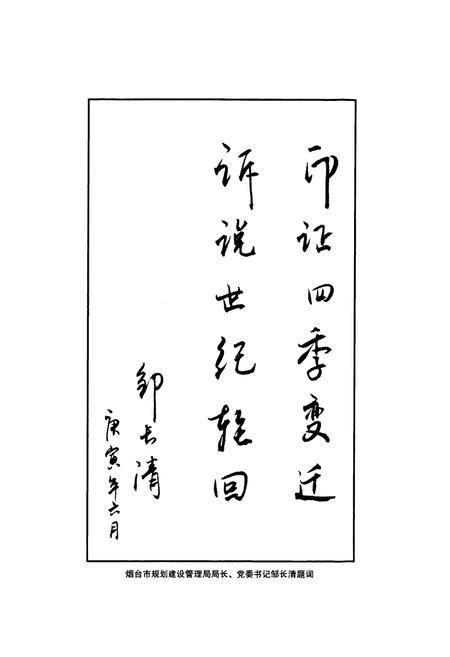 印证四季变迁
诉说世纪轮回
邹长清
庚寅年六月
烟台市规划建设管理局局长、党委书记邹长清题词